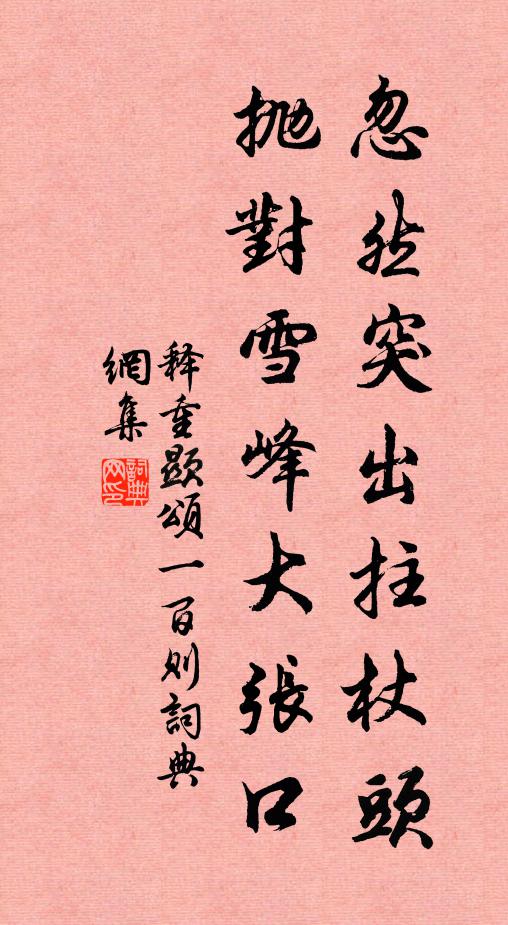 忽然突出拄杖頭
抛對雪峰大張口
释重顯頌一百则詞典
網集
詞典网印